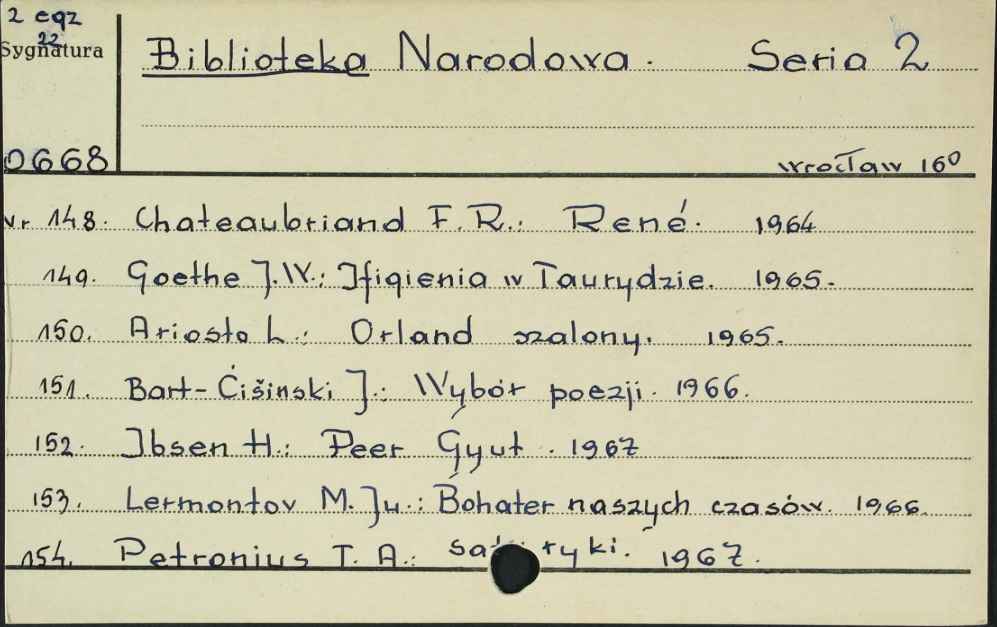 2 egz
22
Sygnatura
Biblioteka Narodowa. Seria 2
0668
Wrocław 16⁰
Nr 148. Chateaubriand F. R.: René. 1964
149. Goethe J. W.: Ifigienia w Taurydzie. 1965.
150. Ariosto L.: Orland szalony. 1965.
151. Bart-Ćišinski J.: Wybór poezji. 1966.
152. Ibsen H.: Peer Gyut. 1967
153. Lermontov M. Ju.: Bohater naszych czasów. 1966.
154. Petronius T. A.: 1967.